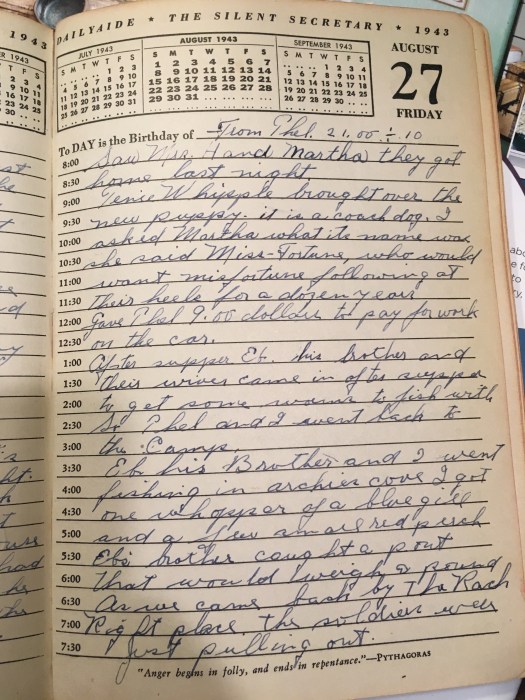 DAILYAIDE * THE SILENT SECRETARY * 1943
JULY 1943
S M T W T F S
1 2 3
4 5 6 7 8 9 10
11 12 13 14 15 16 17
18 19 20 21 22 23 24
25 26 27 28 29 30 31
AUGUST 1943
S M T W T F S
1 2 3 4 5 6 7
8 9 10 11 12 13 14
15 16 17 18 19 20 21
22 23 24 25 26 27 28
29 30 31
SEPTEMBER 1943
S M T W T F S
1 2 3 4
5 6 7 8 9 10 11
12 13 14 15 16 17 18
19 20 21 22 23 24 25
26 27 28 29 30
AUGUST
27
FRIDAY
To DAY is the Birthday of From Phel. 21.00 ÷ .10
8:00 Saw Mrs. H and Martha they got
8:30 home last night.
9:00 Whipple brought over the
9:30 new puppy. it is a coach dog. I
10:00 asked Martha what its name was
10:30 she said Miss-Fortune, who would
11:00 want misfortune following at
11:30 their heels for a dozen years
12:00 Gave Phel 9.00 dollars to pay for work
12:30 on the car.
1:00 After supper Eb. his brother and
1:30 their wives came in after supper
2:00 to get some worms to fish with
2:30 So Phel and I went back to
3:00 the Camp.
3:30 Eb his Brother and I went
4:00 fishing in archies cove I got
4:30 one whopper of a blue gill
5:00 and a few small red perch
5:30 Ebs brother caught a pout
6:00 that would weigh a pound
6:30 As we came back by The Rach
7:00 Right place the soldiers were
7:30 just pulling out.
"Anger begins in folly, and ends in repentance."—PYTHAGORAS